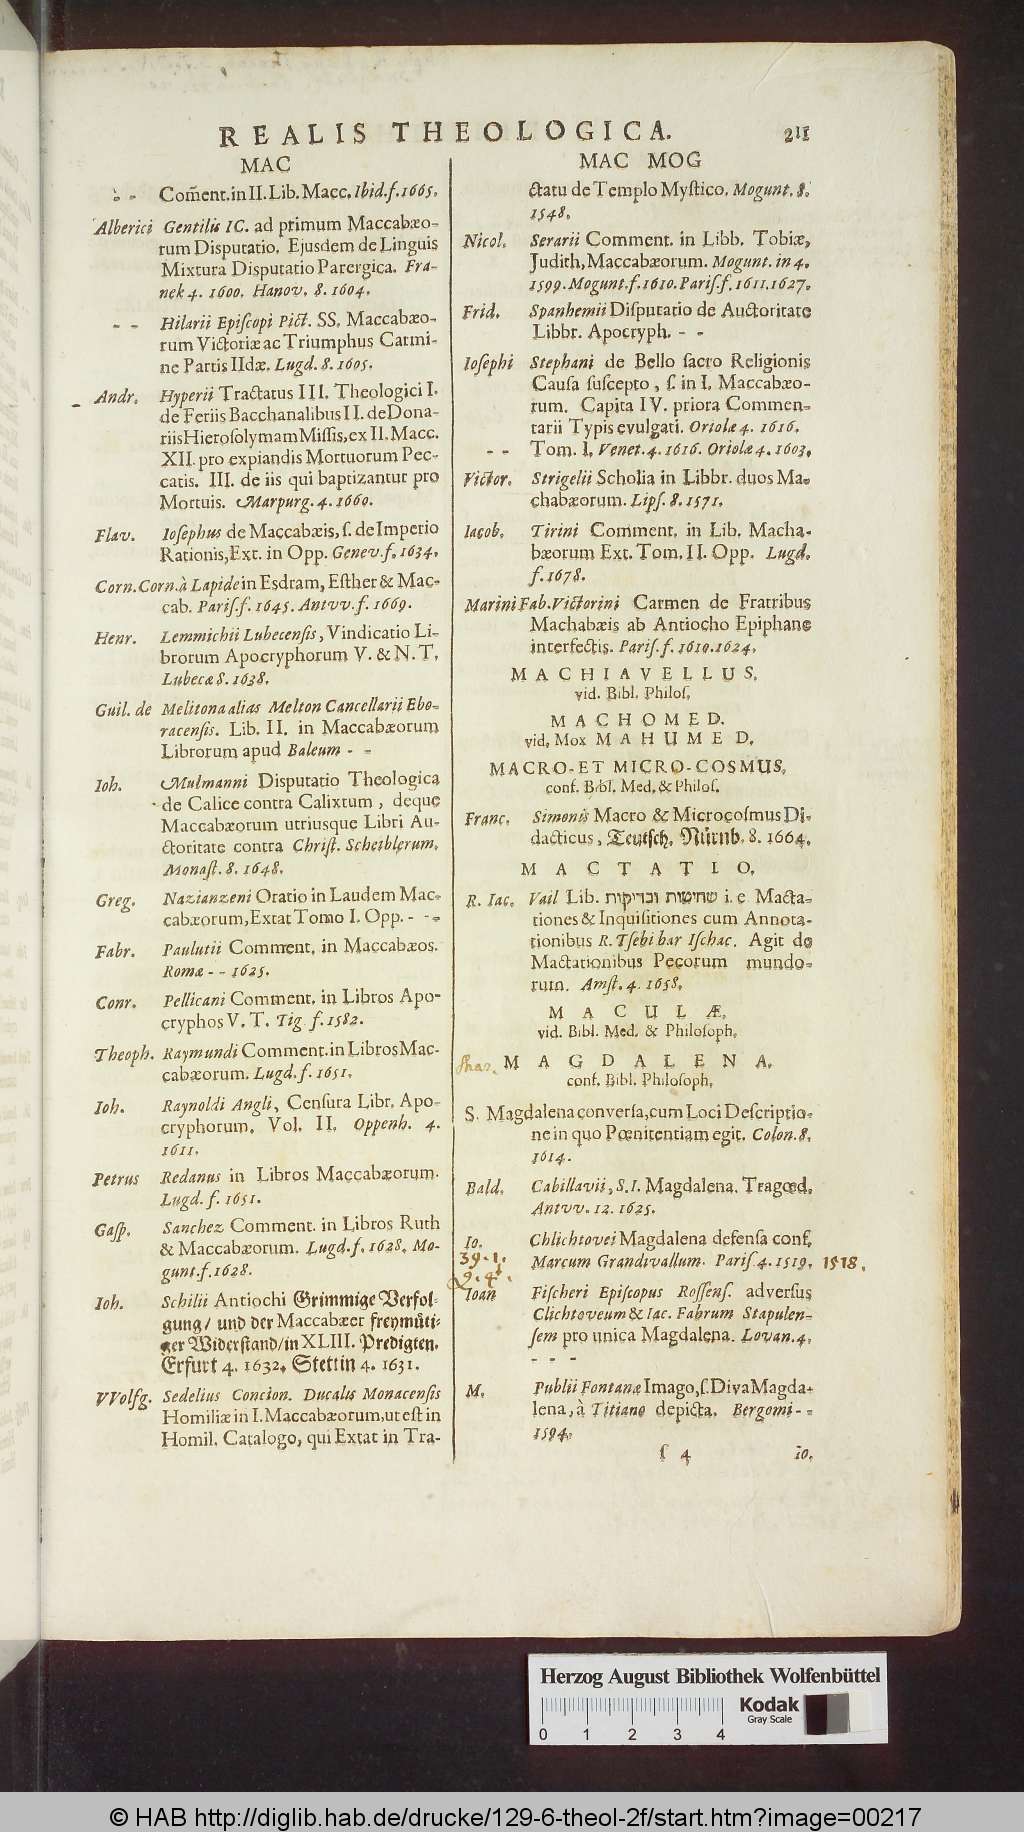 REALIS THEOLOGICA. 211
MAC
- - Com̃ent. in II. Lib. Macc. Ibid. f. 1665.
Alberici Gentilis IC. ad primum Maccabæo-
rum Disputatio. Ejusdem de Linguis
Mixtura Disputatio Parergica. Fra-
nek 4. 1600. Hanov. 8. 1604.
- - Hilarii Epiſcopi Pict. SS. Maccabæo-
rum Victoriæ ac Triumphus Carmi-
ne Partis IIdæ. Lugd. 8. 1605.
Andr. Hyperii Tractatus III. Theologici I.
de Feriis Bacchanalibus II. de Dona-
riis Hieroſolymam Miſſis, ex II. Macc.
XII. pro expiandis Mortuorum Pec-
catis. III. de iis qui baptizantur pro
Mortuis. Marpurg. 4. 1660.
Flav. Ioſephus de Maccabæis, ſ. de Imperio
Rationis, Ext. in Opp. Genev. f. 1634.
Corn. Corn. à Lapide in Esdram, Eſther & Mac-
cab. Pariſ. f. 1645. Antvv. f. 1669.
Henr. Lemmichii Lubecenſis, Vindicatio Li-
brorum Apocryphorum V. & N. T.
Lubecæ 8. 1638.
Guil. de Melitona alias Melton Cancellarii Ebo-
racenſis. Lib. II. in Maccabæorum
Librorum apud Baleum - -
Ioh. Mulmanni Disputatio Theologica
de Calice contra Calixtum, deque
Maccabæorum utriusque Libri Au-
ctoritate contra Chriſt. Scheiblerum.
Monaſt. 8. 1648.
Greg. Nazianzeni Oratio in Laudem Mac-
cabæorum, Extat Tomo I. Opp. - -
Fabr. Paulutii Comment. in Maccabæos.
Romæ - - 1625.
Conr. Pellicani Comment. in Libros Apo-
cryphos V. T. Tig f. 1582.
Theoph. Raymundi Comment. in Libros Mac-
cabæorum. Lugd. f. 1651.
Ioh. Raynoldi Angli, Cenſura Libr. Apo-
cryphorum. Vol. II. Oppenh. 4.
1611.
Petrus Redanus in Libros Maccabæorum.
Lugd. f. 1651.
Gaſp. Sanchez Comment. in Libros Ruth
& Maccabæorum. Lugd. f. 1628. Mo-
gunt. f. 1628.
Ioh. Schilii Antiochi Grimmige Verfol-
gung/ und der Maccabæer freymüti-
ger Widerſtand/ in XLIII. Predigten.
Erfurt 4. 1632. Stettin 4. 1631.
VVolfg. Sedelius Concion. Ducalis Monacenſis
Homiliæ in I. Maccabæorum, ut eſt in
Homil. Catalogo, qui Extat in Tra-
MAC MOG
ctatu de Templo Myſtico. Mogunt. 8.
1548.
Nicol. Serarii Comment. in Libb. Tobiæ,
Judith, Maccabæorum. Mogunt. in 4.
1599. Mogunt. f. 1610. Pariſ. f. 1611. 1627.
Frid. Spanhemii Diſputatio de Auctoritate
Libbr. Apocryph. - -
Ioſephi Stephani de Bello ſacro Religionis
Cauſa ſuſcepto, ſ. in I. Maccabæo-
rum. Capita IV. priora Commen-
tarii Typis evulgati. Oriolæ 4. 1616.
- - Tom. I. Venet. 4. 1616. Oriolæ 4. 1603.
Victor. Strigelii Scholia in Libbr. duos Ma-
chabæorum. Lipſ. 8. 1571.
Iacob. Tirini Comment. in Lib. Macha-
bæorum Ext. Tom. II. Opp. Lugd.
f. 1678.
Marini Fab. Victorini Carmen de Fratribus
Machabæis ab Antiocho Epiphane
interfectis. Pariſ. f. 1610. 1624.
MACHIAVELLUS,
vid. Bibl. Philoſ.
MACHOMED.
vid. Mox MAHUMED.
MACRO- ET MICRO-COSMUS,
conf. Bibl. Med. & Philoſ.
Franc. Simonis Macro & Microcoſmus Di-
dacticus, Teutſch. Nürnb. 8. 1664.
MACTATIO.
R. Iac. Vail Lib. שחיטות ובדיקות i. e Macta-
tiones & Inquiſitiones cum Annota-
tionibus R. Tſebi bar Iſchac. Agit de
Mactationibus Pecorum mundo-
rum. Amſt. 4. 1658.
MACULÆ,
vid. Bibl. Med. & Philoſoph.
MAGDALENA.
conf. Bibl. Philoſoph.
S. Magdalena converſa, cum Loci Deſcriptio-
ne in quo Pœnitentiam egit. Colon. 8.
1614.
Bald. Cabillavii, S. I. Magdalena. Tragœd.
Antvv. 12. 1625.
Io. Chlichtovei Magdalena defenſa conf.
39. 1. Marcum Grandivallum. Pariſ. 4. 1519. 1518.
Q. 4.
Ioan Fiſcheri Epiſcopus Roſſenſ. adverſus
Clichtoveum & Iac. Fabrum Stapulen-
ſem pro unica Magdalena. Lovan. 4.
- - -
M. Publii Fontanæ Imago, ſ. Diva Magda-
lena, à Titiano depicta. Bergomi - -
1594.
ſ 4 io.
Herzog August Bibliothek Wolfenbüttel
Kodak
Gray Scale
0 1 2 3 4
© HAB http://diglib.hab.de/drucke/129-6-theol-2f/start.htm?image=00217